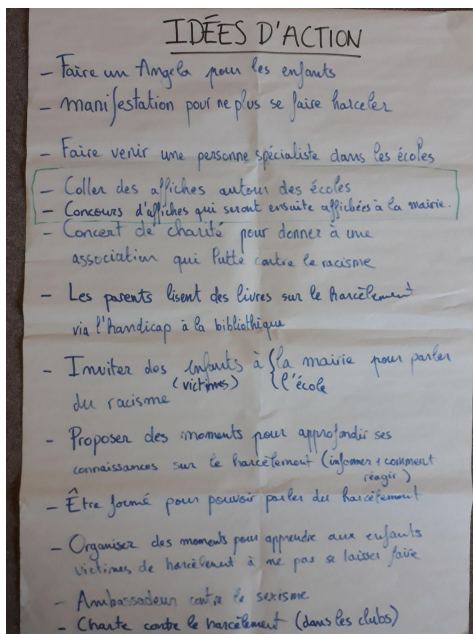 IDÉES D'ACTION
- Faire un Angela pour les enfants
- manifestation pour ne plus se faire harceler
- Faire venir une personne spécialiste dans les écoles
- Coller des affiches autour des écoles
- Concours d'affiches qui seront ensuite affichées à la mairie.
- Concert de charité pour donner à une
association qui lutte contre le racisme
- Les parents lisent des livres sur le harcèlement
via l'handicap à la bibliothèque
- Inviter des enfants à { la mairie pour parler
(victimes) { l'école
du racisme
- Proposer des moments pour approfondir ses
connaissances sur le harcèlement (informer + comment
réagir)
- Être formé pour pouvoir parler du harcèlement
- Organiser des moments pour apprendre aux enfants
victimes de harcèlement à ne pas se laisser faire
- Ambassadeur contre le sexisme
- Charte contre le harcèlement (dans les clubs)